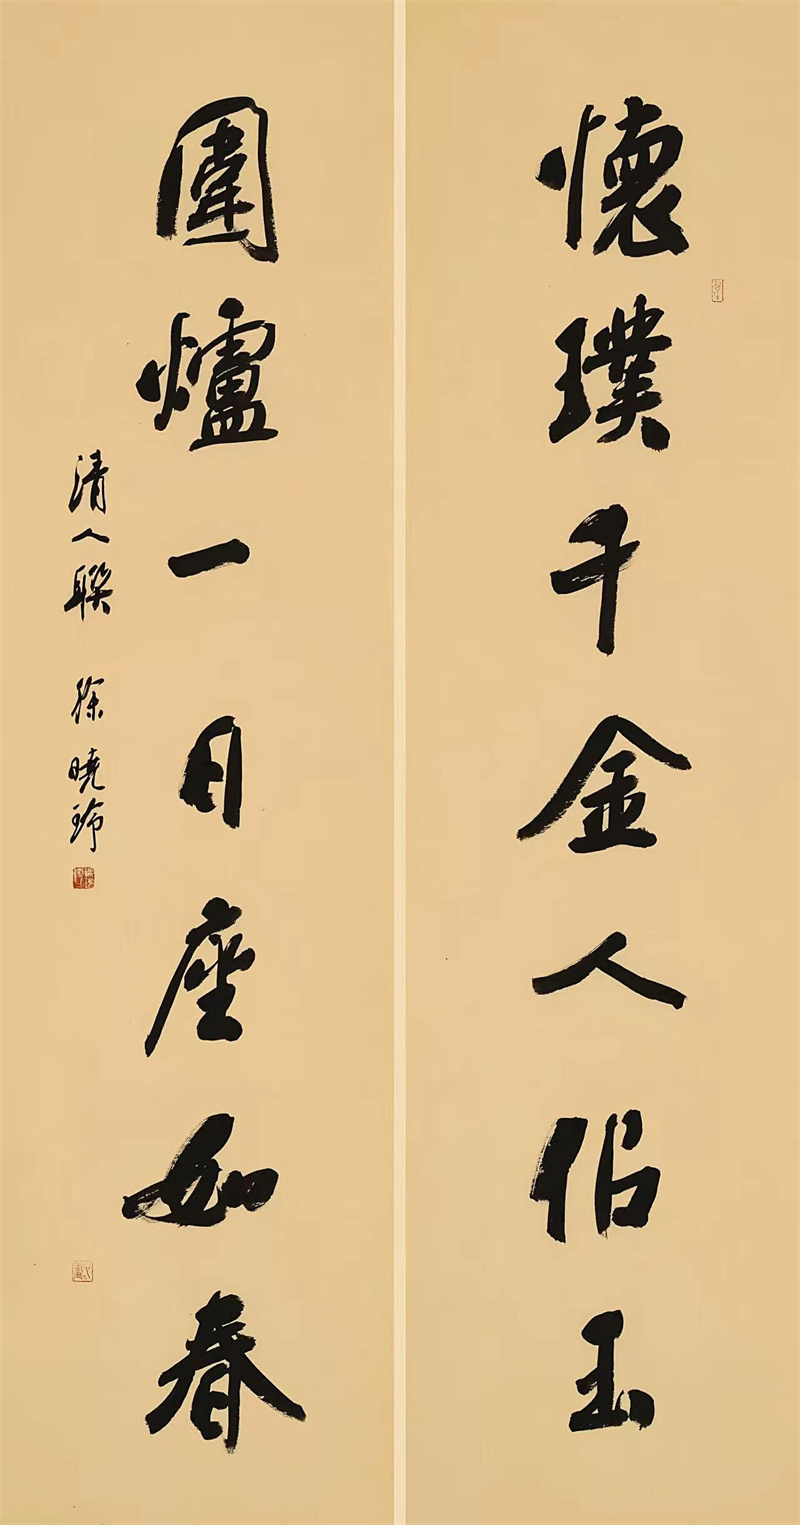 懷璞千金人佀玉
圍爐一日座如春
清人聯 徐曉玲